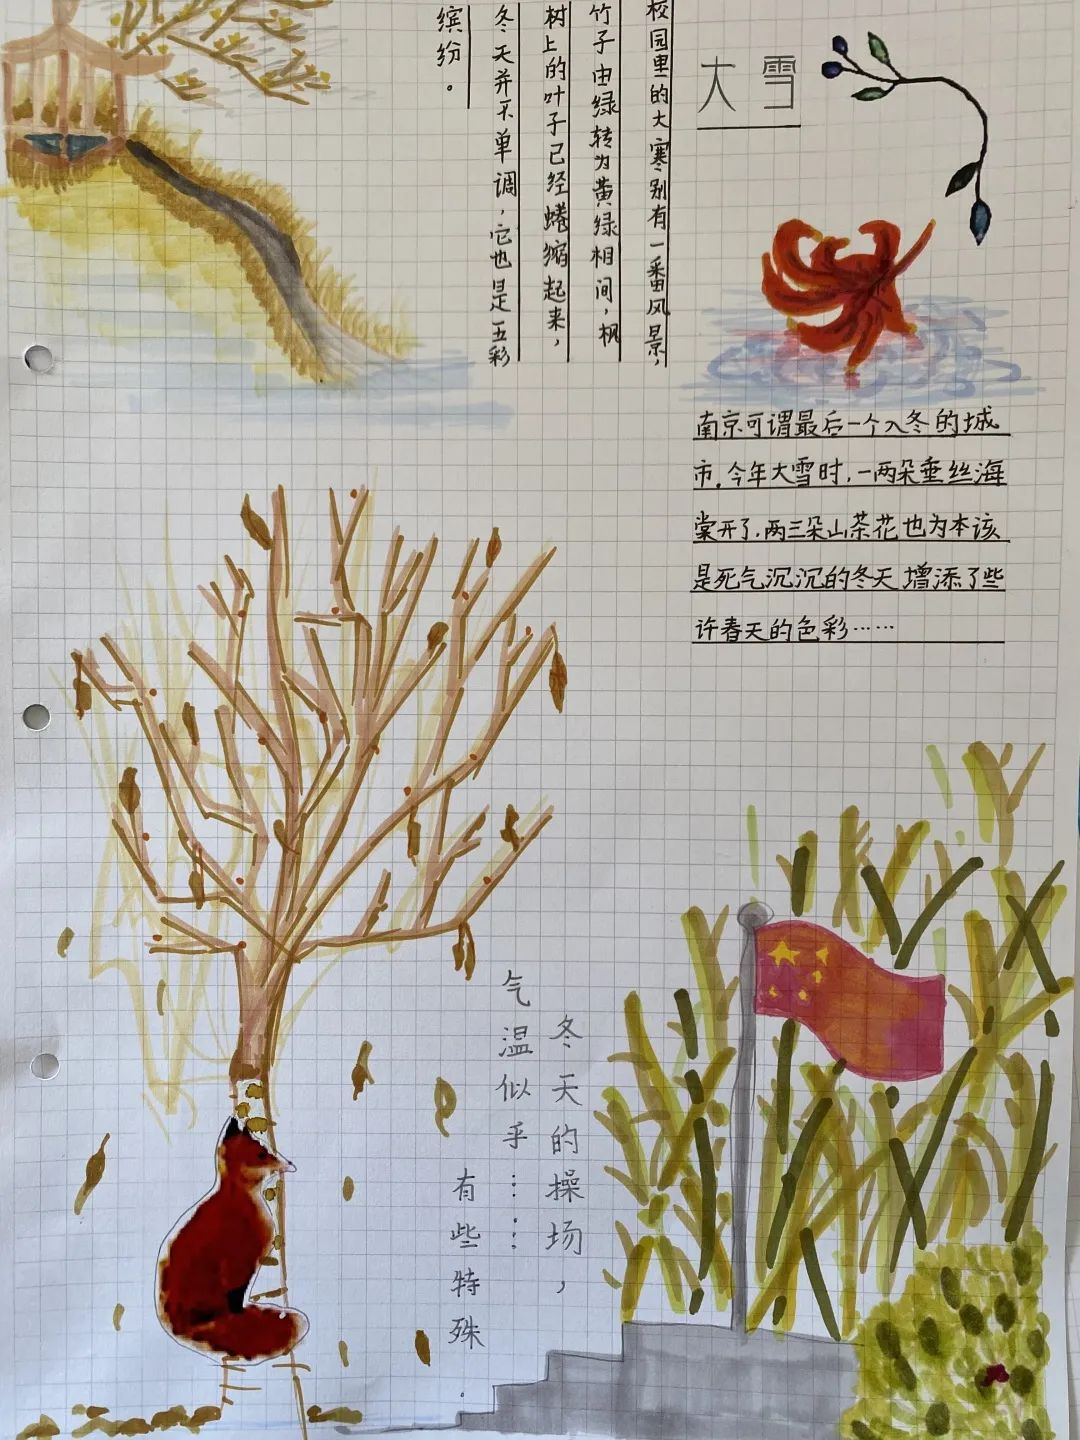 大雪
校园里的大寒别有一番风景，
竹子由绿转为黄绿相间，枫
树上的叶子已经蜷缩起来，
冬天并不单调，它也是五彩
缤纷。
南京可谓最后一个入冬的城
市。今年大雪时，一两朵垂丝海
棠开了，两三朵山茶花也为本该
是死气沉沉的冬天增添了些
许春天的色彩……
冬天的操场，
气温似乎……
有些特殊.